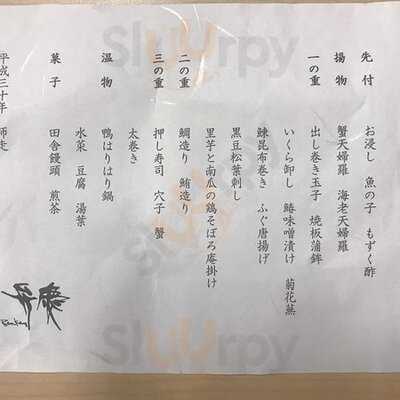 先付　お浸し　魚の子　もずく酢
揚物　蟹天婦羅　海老天婦羅
一の重　出し巻き玉子　焼板蒲鉾
いくら卸し　鰆味噌漬け　菊花蕪
鰊昆布巻き　ふぐ唐揚げ
黒豆松葉刺し
里芋と南瓜の鶏そぼろ庵掛け
二の重　鯛造り　鮪造り
三の重　押し寿司　穴子　蟹
太巻き
温物　鴨はりはり鍋
水菜　豆腐　湯葉
菓子　田舎饅頭　煎茶
平成三十年　師走
Sluurpy
Sluurpy